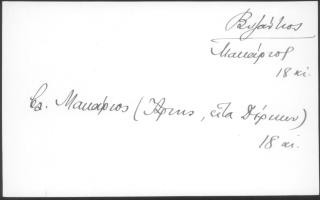 Βυζάντιος
Μακάριος
18 αἰ.
βλ. Μακάριος (Ἄρτης, εἶτα Δέρκων)
18 αἰ.